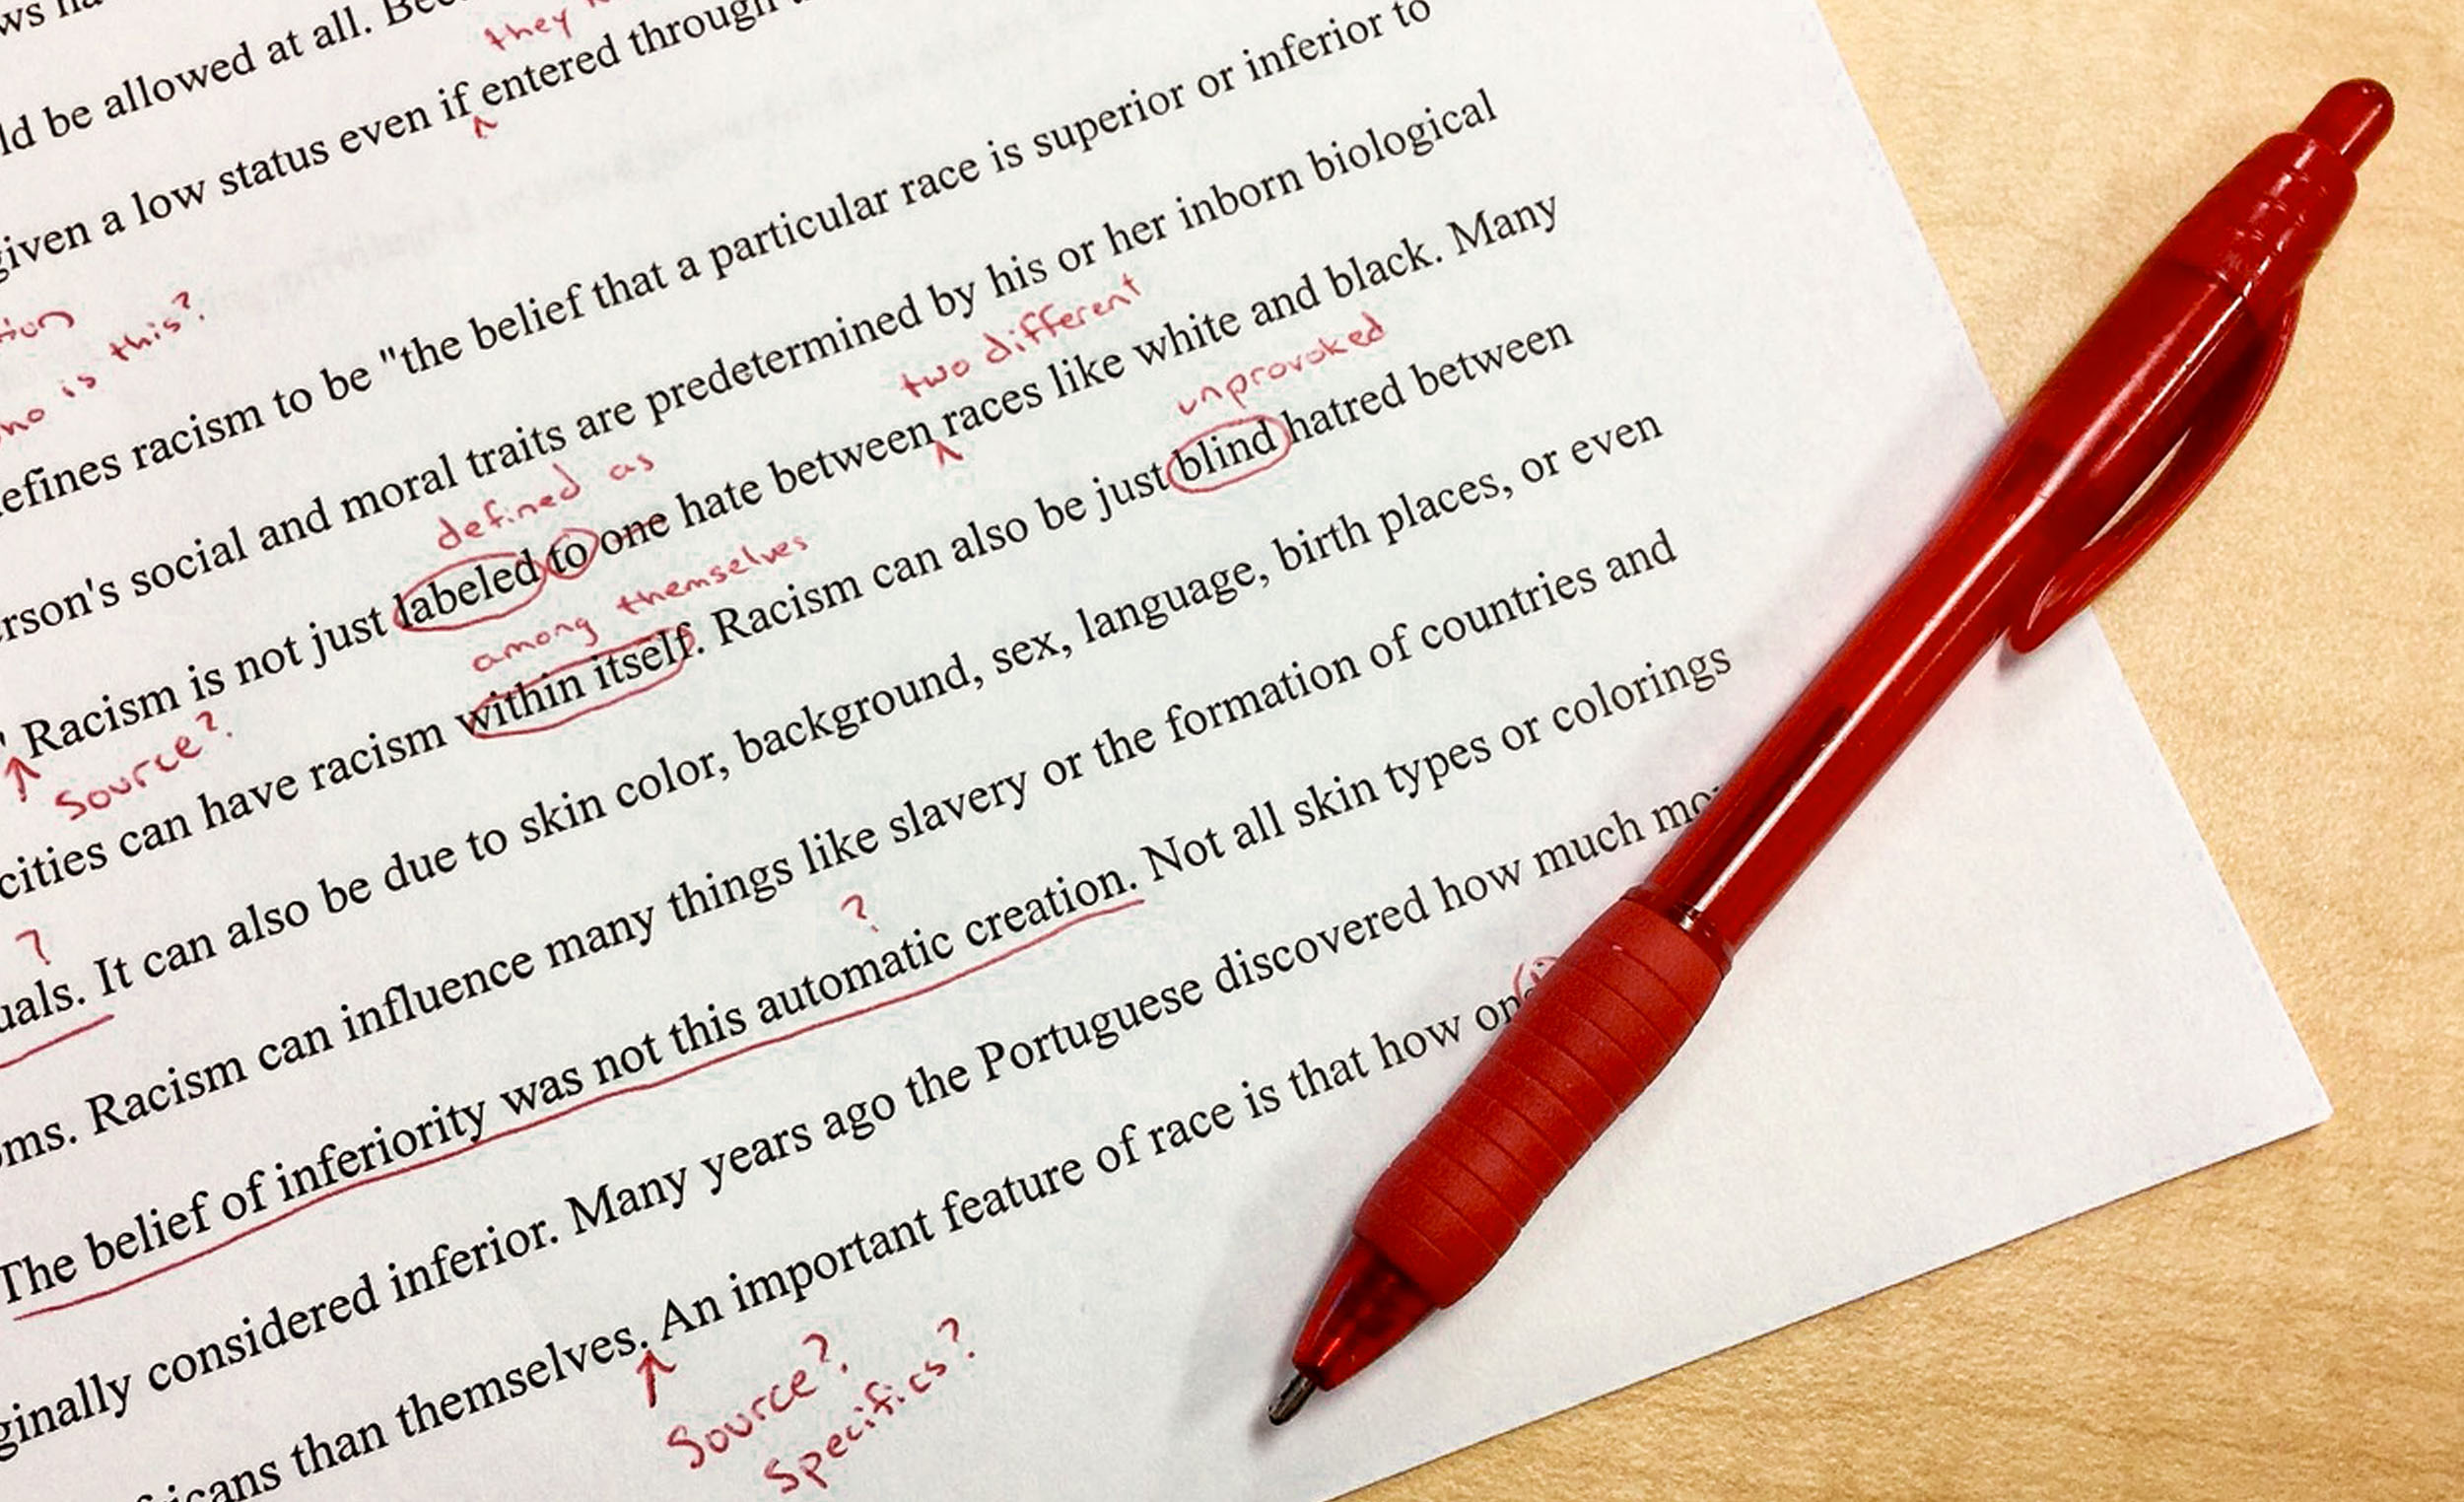 be allowed at all.
they
given a low status even if entered through
tion
is this?
defines racism to be "the belief that a particular race is superior or inferior to
social and moral traits are predetermined by his or her inborn biological
two different
defined as
" Racism is not just labeled to one hate between races like white and black. Many
Source?
among themselves
unprovoked
cities can have racism within itself. Racism can also be just blind hatred between
?
It can also be due to skin color, background, sex, language, birth places, or even
Racism can influence many things like slavery or the formation of countries and
?
The belief of inferiority was not this automatic creation. Not all skin types or colorings
considered inferior. Many years ago the Portuguese discovered how much
than themselves. An important feature of race is that how
Source?
Specifics?